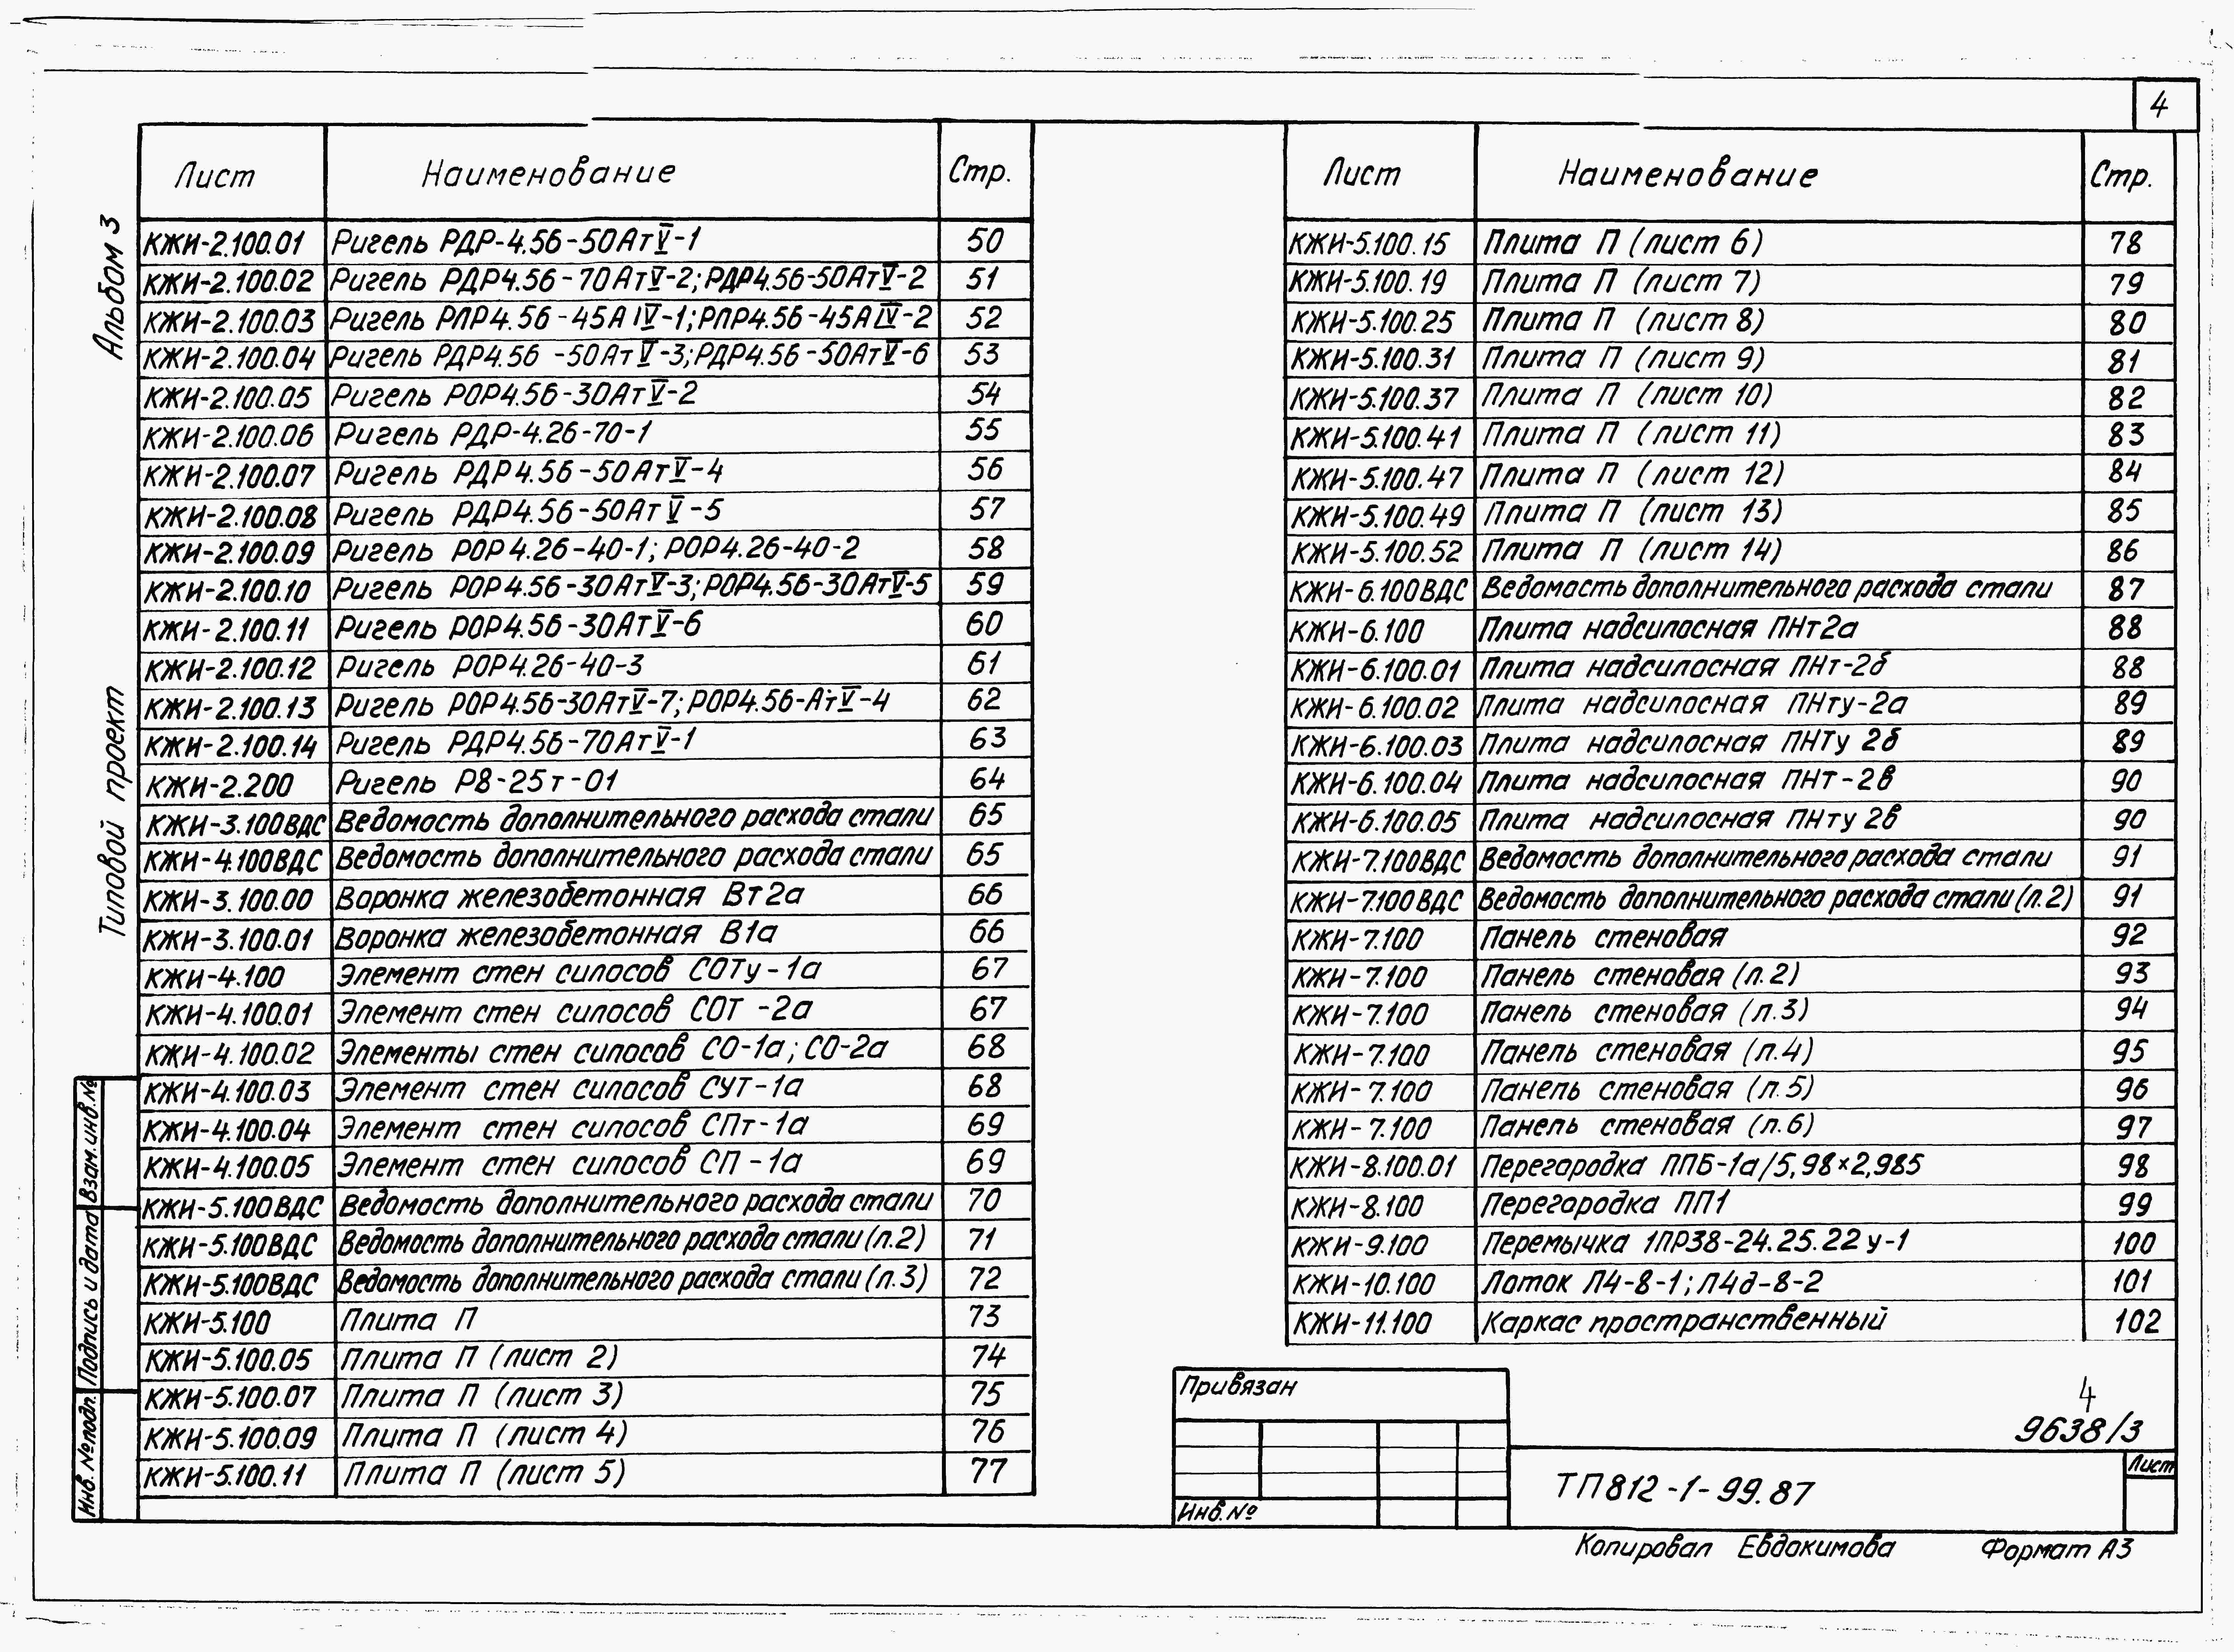 4
Альбом 3
Типовой проект
Лист Наименование Стр.
КЖИ-2.100.01 Ригель РДР-4.56-50АтV-1 50
КЖИ-2.100.02 Ригель РДР4.56-70АтV-2; РДР4.56-50АтV-2 51
КЖИ-2.100.03 Ригель РЛР4.56-45АIV-1; РЛР4.56-45АIV-2 52
КЖИ-2.100.04 Ригель РДР4.56-50АтV-3; РДР4.56-50АтV-6 53
КЖИ-2.100.05 Ригель РОР4.56-30АтV-2 54
КЖИ-2.100.06 Ригель РДР-4.26-70-1 55
КЖИ-2.100.07 Ригель РДР4.56-50АтV-4 56
КЖИ-2.100.08 Ригель РДР4.56-50АтV-5 57
КЖИ-2.100.09 Ригель РОР4.26-40-1; РОР4.26-40-2 58
КЖИ-2.100.10 Ригель РОР4.56-30АтV-3; РОР4.56-30АтV-5 59
КЖИ-2.100.11 Ригель РОР4.56-30АтV-6 60
КЖИ-2.100.12 Ригель РОР4.26-40-3 61
КЖИ-2.100.13 Ригель РОР4.56-30АтV-7; РОР4.56-АтV-4 62
КЖИ-2.100.14 Ригель РДР4.56-70АтV-1 63
КЖИ-2.200 Ригель Р8-25т-01 64
КЖИ-3.100ВДС Ведомость дополнительного расхода стали 65
КЖИ-4.100ВДС Ведомость дополнительного расхода стали 65
КЖИ-3.100.00 Воронка железобетонная Вт2а 66
КЖИ-3.100.01 Воронка железобетонная В1а 66
КЖИ-4.100 Элемент стен силосов СОТу-1а 67
КЖИ-4.100.01 Элемент стен силосов СОТ-2а 67
КЖИ-4.100.02 Элементы стен силосов СО-1а; СО-2а 68
КЖИ-4.100.03 Элемент стен силосов СУТ-1а 68
КЖИ-4.100.04 Элемент стен силосов СПт-1а 69
КЖИ-4.100.05 Элемент стен силосов СП-1а 69
КЖИ-5.100ВДС Ведомость дополнительного расхода стали 70
КЖИ-5.100ВДС Ведомость дополнительного расхода стали (л.2) 71
КЖИ-5.100ВДС Ведомость дополнительного расхода стали (л.3) 72
КЖИ-5.100 Плита П 73
КЖИ-5.100.05 Плита П (лист 2) 74
КЖИ-5.100.07 Плита П (лист 3) 75
КЖИ-5.100.09 Плита П (лист 4) 76
КЖИ-5.100.11 Плита П (лист 5) 77
Лист Наименование Стр.
КЖИ-5.100.15 Плита П (лист 6) 78
КЖИ-5.100.19 Плита П (лист 7) 79
КЖИ-5.100.25 Плита П (лист 8) 80
КЖИ-5.100.31 Плита П (лист 9) 81
КЖИ-5.100.37 Плита П (лист 10) 82
КЖИ-5.100.41 Плита П (лист 11) 83
КЖИ-5.100.47 Плита П (лист 12) 84
КЖИ-5.100.49 Плита П (лист 13) 85
КЖИ-5.100.52 Плита П (лист 14) 86
КЖИ-6.100ВДС Ведомость дополнительного расхода стали 87
КЖИ-6.100 Плита надсилосная ПНт2а 88
КЖИ-6.100.01 Плита надсилосная ПНт-2б 88
КЖИ-6.100.02 Плита надсилосная ПНту-2а 89
КЖИ-6.100.03 Плита надсилосная ПНТу 2б 89
КЖИ-6.100.04 Плита надсилосная ПНт-2в 90
КЖИ-6.100.05 Плита надсилосная ПНту 2в 90
КЖИ-7.100ВДС Ведомость дополнительного расхода стали 91
КЖИ-7.100ВДС Ведомость дополнительного расхода стали (л.2) 91
КЖИ-7.100 Панель стеновая 92
КЖИ-7.100 Панель стеновая (л.2) 93
КЖИ-7.100 Панель стеновая (л.3) 94
КЖИ-7.100 Панель стеновая (л.4) 95
КЖИ-7.100 Панель стеновая (л.5) 96
КЖИ-7.100 Панель стеновая (л.6) 97
КЖИ-8.100.01 Перегородка ППБ-1а/5,98×2,985 98
КЖИ-8.100 Перегородка ПП1 99
КЖИ-9.100 Перемычка 1ПР38-24.25.22у-1 100
КЖИ-10.100 Лоток Л4-8-1; Л4д-8-2 101
КЖИ-11.100 Каркас пространственный 102
Взам.инв.№
Подпись и дата
Инв. №подл.
Привязан
Инв.№
4
9638/3
ТП812-1-99.87
Лист
Копировал Евдокимова Формат А3